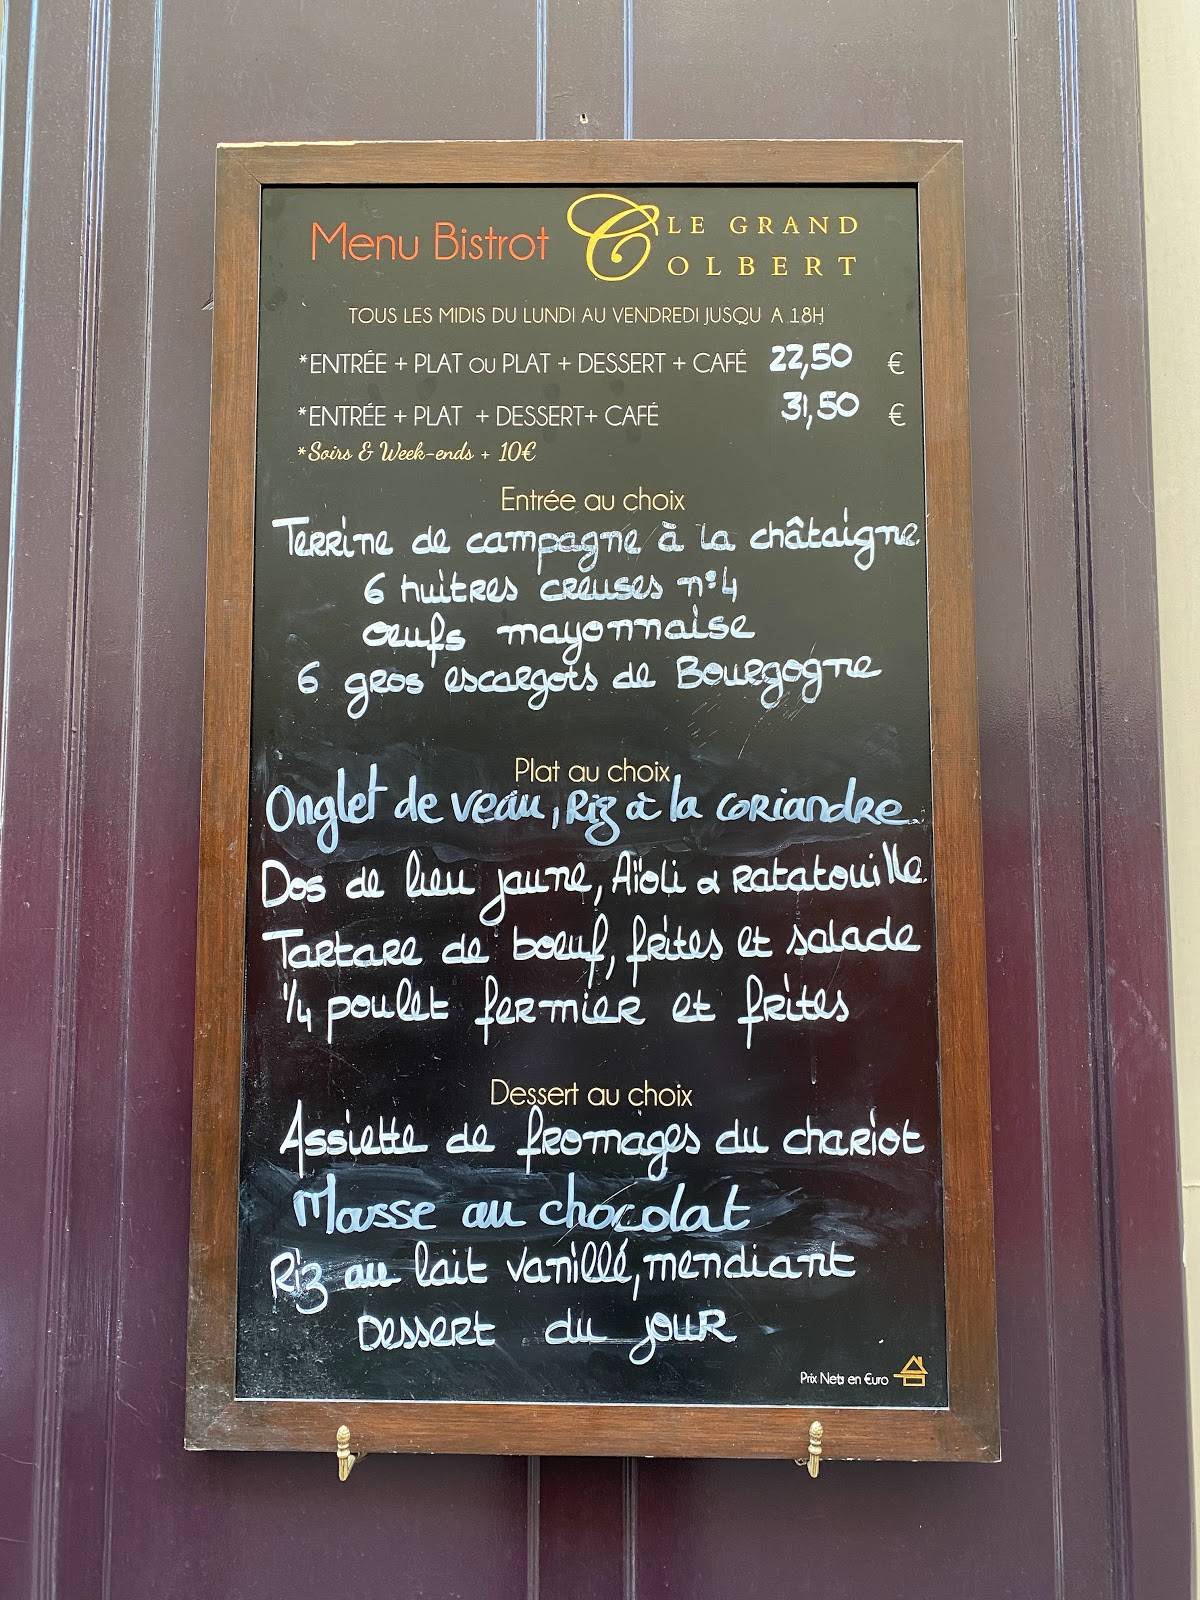 Menu Bistrot LE GRAND COLBERT
TOUS LES MIDIS DU LUNDI AU VENDREDI JUSQU A 18H
*ENTRÉE + PLAT OU PLAT + DESSERT + CAFÉ 22,50 €
*ENTRÉE + PLAT + DESSERT+ CAFÉ 31,50 €
*Soirs & Week-ends + 10€
Entrée au choix
Terrine de campagne à la châtaigne.
6 huîtres creuses n°4
Œufs mayonnaise
6 gros escargots de Bourgogne
Plat au choix
Onglet de veau, Riz à la coriandre
Dos de lieu jaune, Aïoli & ratatouille.
Tartare de bœuf, frites et salade
1/4 poulet fermier et frites
Dessert au choix
Assiette de fromages du chariot
Mousse au chocolat
Riz au lait vanillé, mendiant
Dessert du jour
Prix Nets en €uro